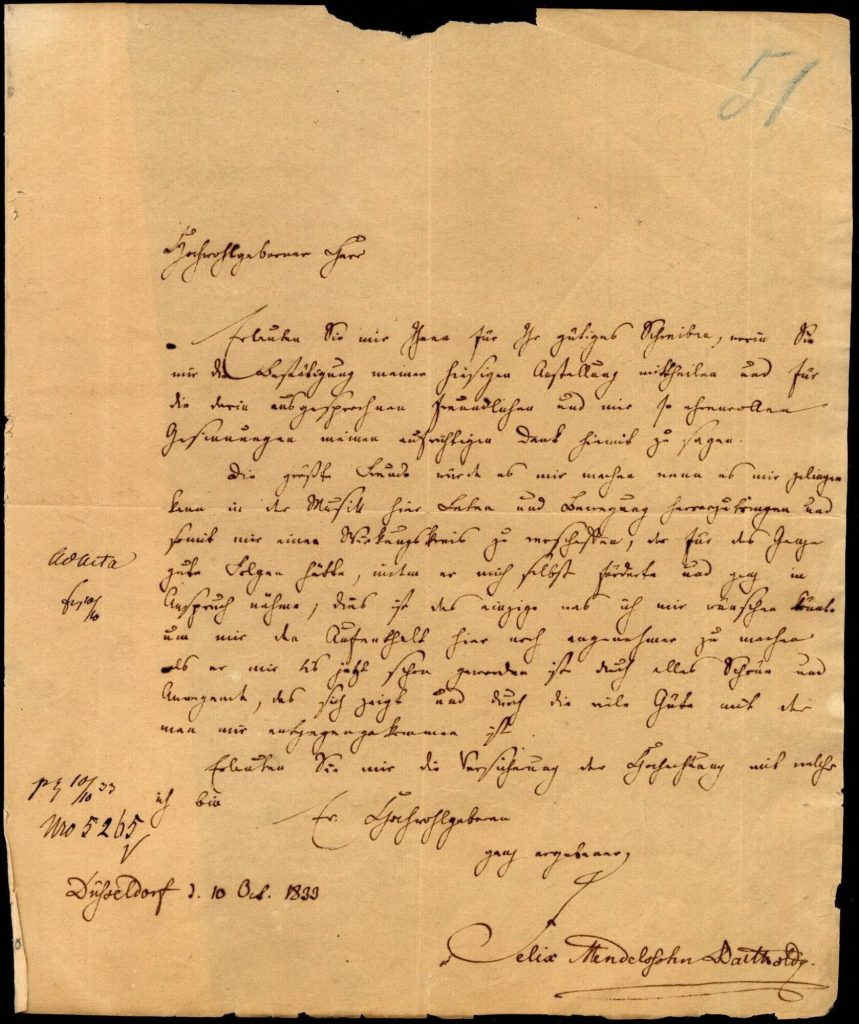 51
Hochwohlgeborner Herr
Erlauben Sie mir Ihnen für Ihr gütiges Schreiben, worin Sie
mir die Bestätigung meiner hiesigen Anstellung mittheilen und für
die darin ausgesprochnen freundlichen und mir so ehrenvollen
Gesinnungen meinen aufrichtigen Dank hiemit zu sagen.
Die größte Freude würde es mir machen wenn es mir gelingen
kann in der Musik hier Leben und Bewegung hervorzubringen und
somit mir einen Wirkungskreis zu verschaffen, der für das Ganze
gute Folgen hätte, indem er mich selbst förderte und ganz in
Anspruch nähme; dies ist das einzige was ich mir wünschen könnte
um mir den Aufenthalt hier noch angenehmer zu machen
als er mir bis jetzt schon geworden ist durch alles Schöne und
Anregende, das sich zeigt und durch die viele Güte mit der
man mir entgegengekommen ist.
Erlauben Sie mir die Versicherung der Hochachtung mit welcher
ich bin
Ew. Hochwohlgeboren
ganz ergebener
Felix Mendelssohn Bartholdy.
Düsseldorf d. 10 Oct. 1833
ad acta
10/10
10/10 33
Nro 5265